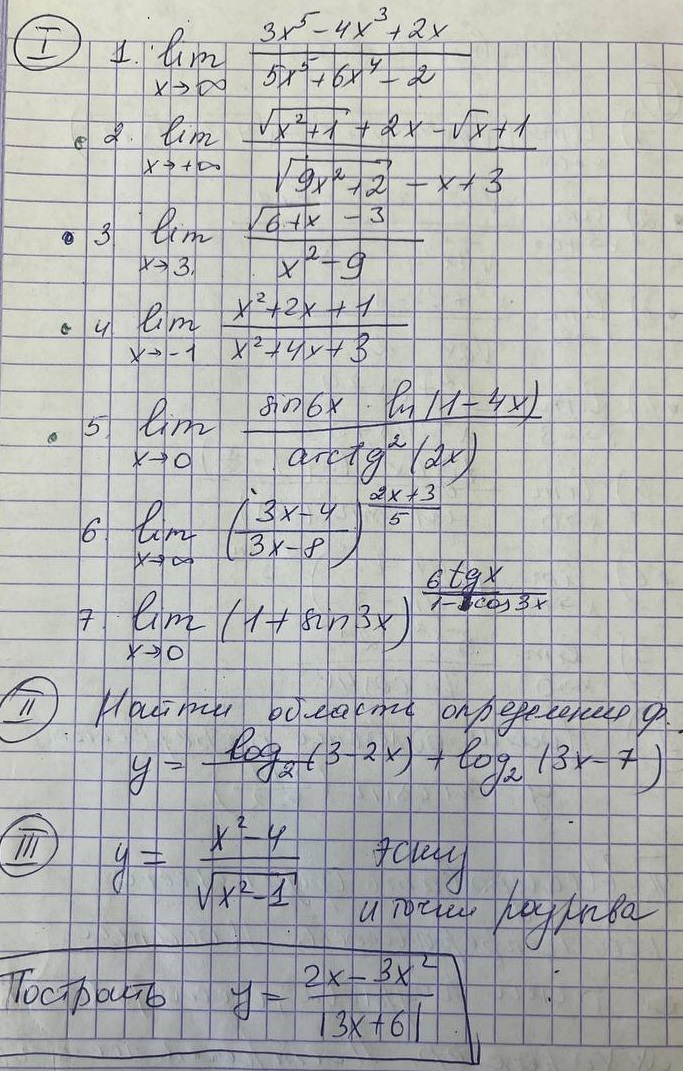 I
1. lim x→∞ (3x⁵ - 4x³ + 2x)/(5x⁵ + 6x⁴ - 2)
2. lim x→+∞ (√(x²+1) + 2x - √x + 1)/(√(9x²+2) - x + 3)
3 lim x→3 (√(6+x) - 3)/(x² - 9)
4 lim x→-1 (x² + 2x + 1)/(x² + 4x + 3)
5. lim x→0 (sin6x · ln(1-4x))/(arctg²(2x))
6. lim x→∞ ((3x-4)/(3x-8))^((2x+3)/5)
7. lim x→0 (1 + sin3x)^((6tgx)/(1-cos3x))
II Найти область определения ф.
y = log₂(3-2x) + log₂(3x-7)
III y = (x²-4)/√(x²-1)
и точки разрыва
Построить y = (2x-3x²)/|3x+6|